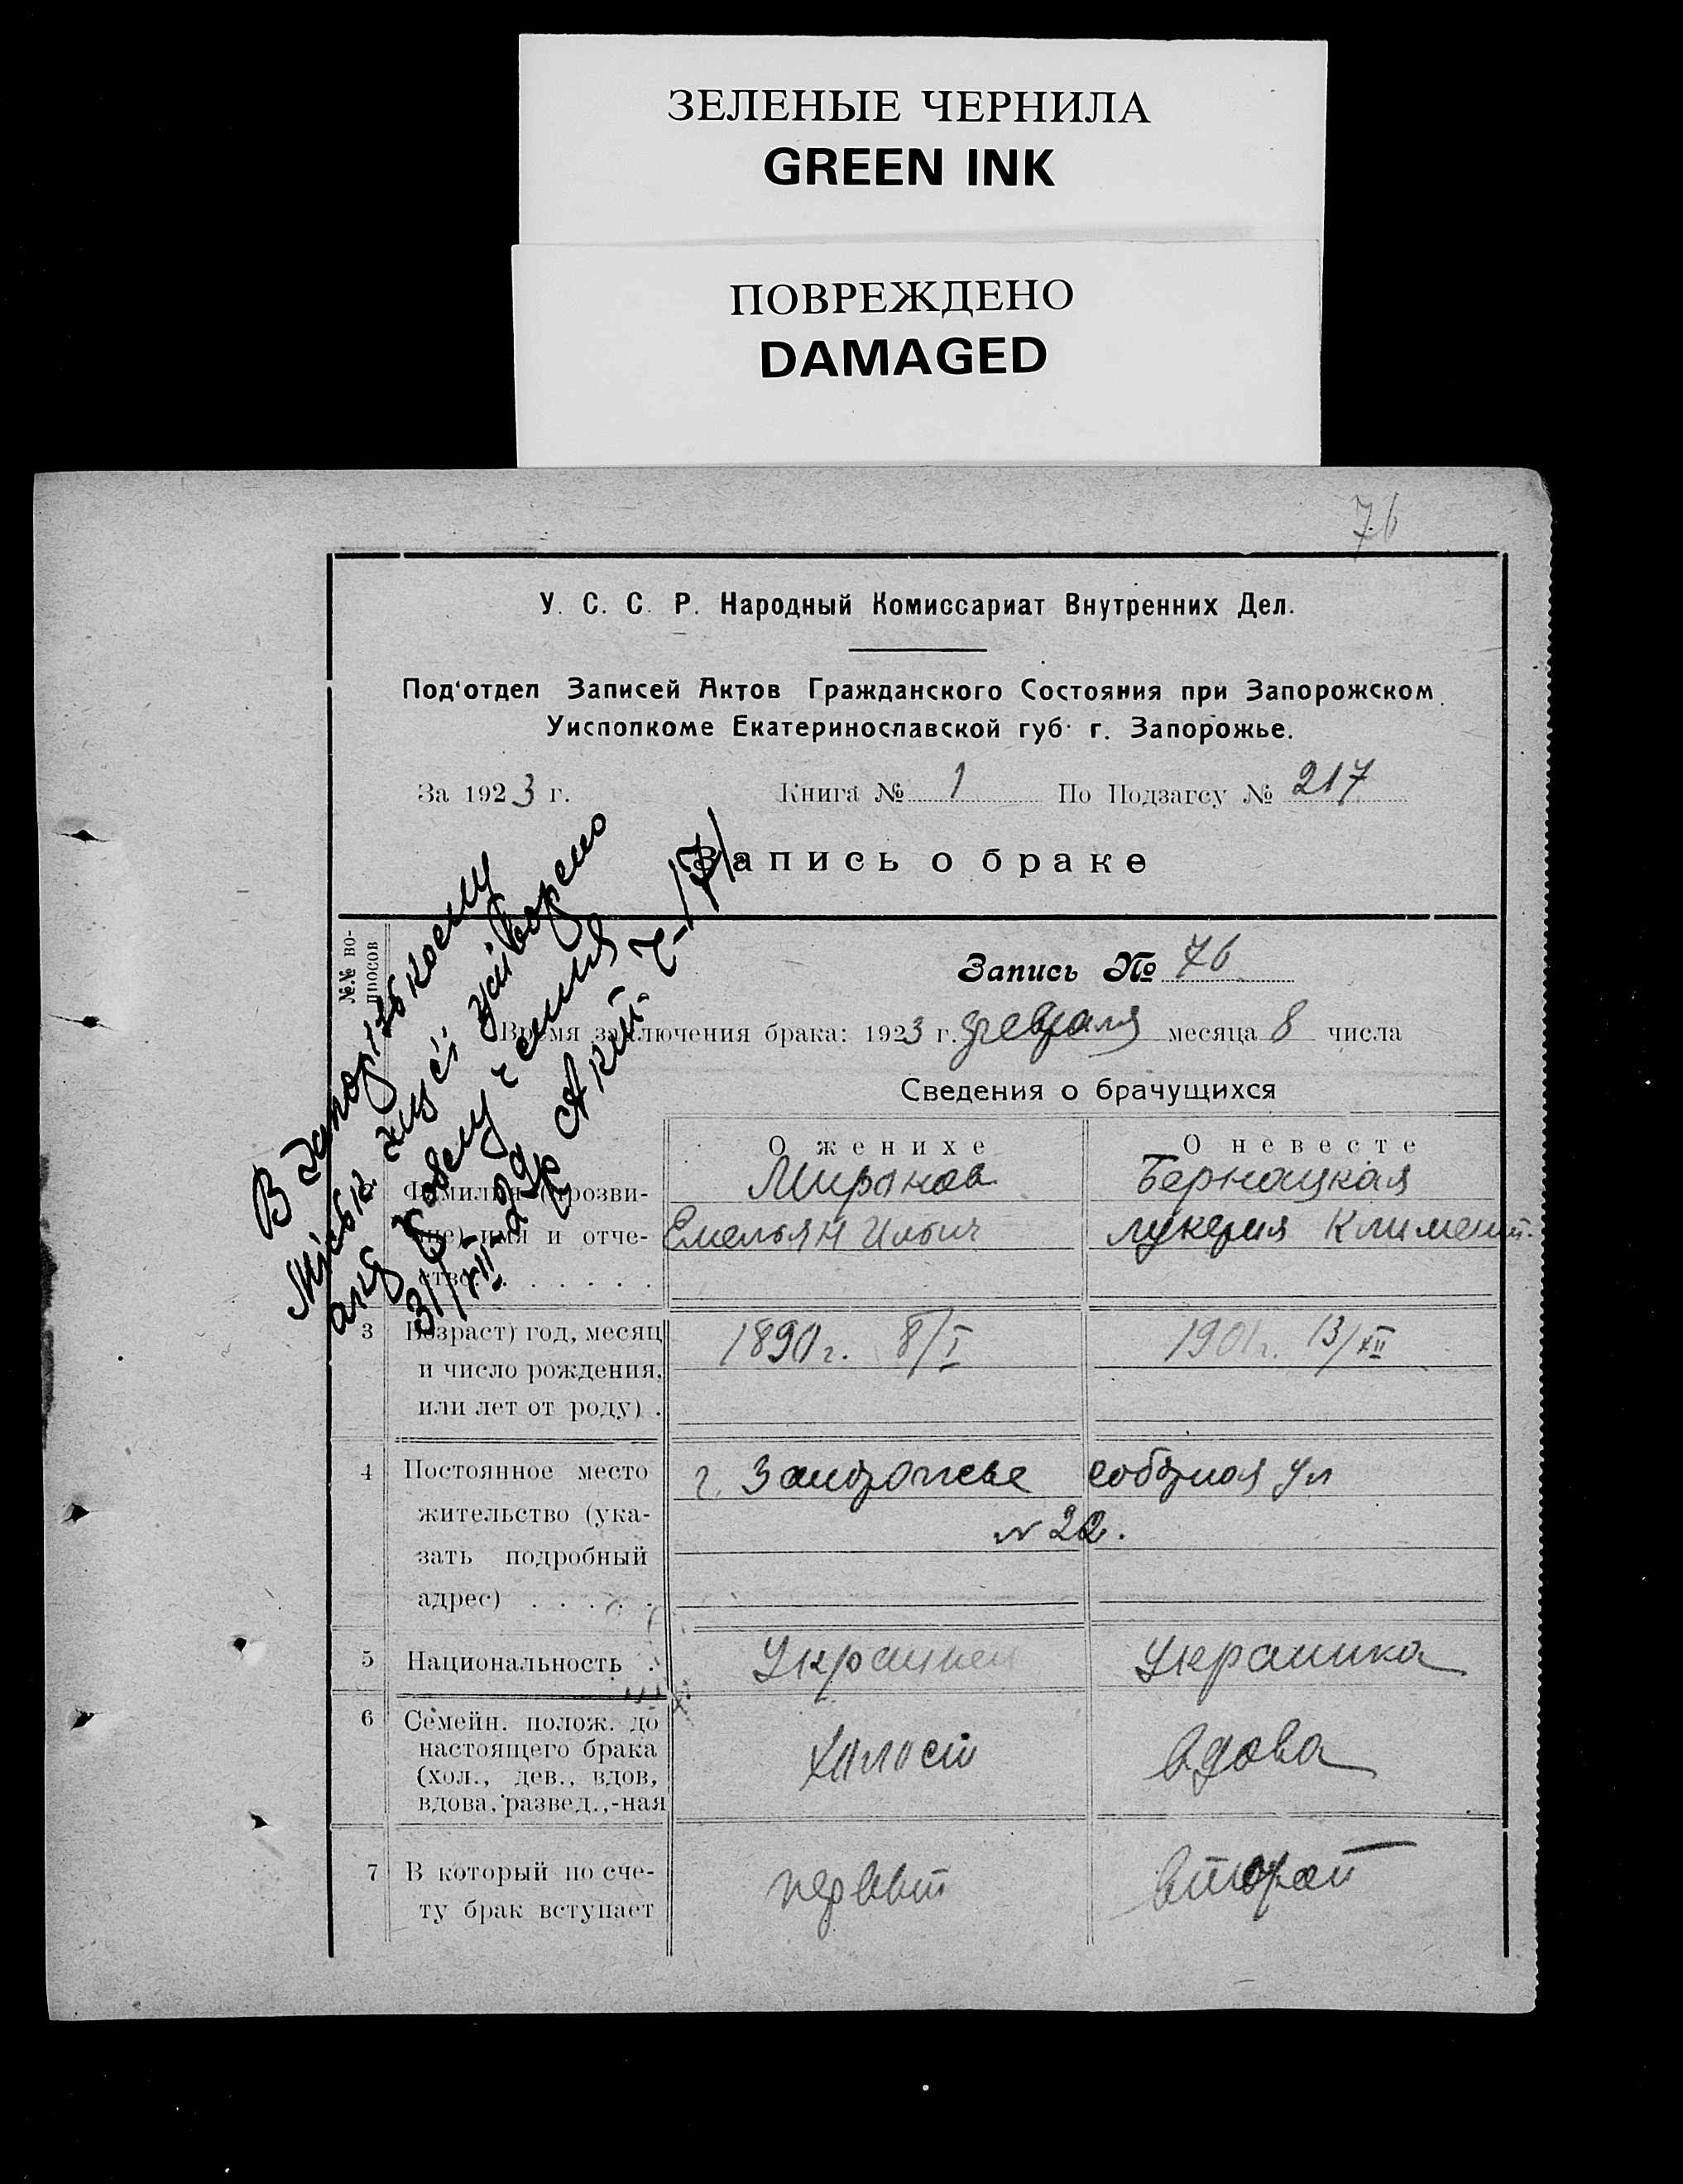 ЗЕЛЕНЫЕ ЧЕРНИЛА
GREEN INK
ПОВРЕЖДЕНО
DAMAGED
76
У. С. С. Р. Народный Комиссариат Внутренних Дел.
Под'отдел Записей Актов Гражданского Состояния при Запорожском
Уисполкоме Екатеринославской губ. г. Запорожье.
За 1923 г. Книга № 1 По Подзагсу № 217
Запись о браке
№№ вопросов
Запись № 76
Время заключения брака: 1923 г. февраля месяца 8 числа
Сведения о брачущихся
О женихе О невесте
Фамилия (прозви- Миронов Бернацкая
ще) имя и отче- Емельян Ильич Лукерия Климент.
ство . . . . . .
В Запорізькому
Міськ.
3 Возраст) год, месяц 1890 г. 8/I 1901 г. 13/XII
и число рождения,
или лет от роду) .
4 Постоянное место г. Запорожье соборная ул
жительство (ука- № 22.
зать подробный
адрес) . . . . .
5 Национальность . Украинец Украинка
6 Семейн. полож. до
настоящего брака холост вдова
(хол., дев., вдов,
вдова, развед.,-ная
7 В который по сче- первый второй
ту брак вступает